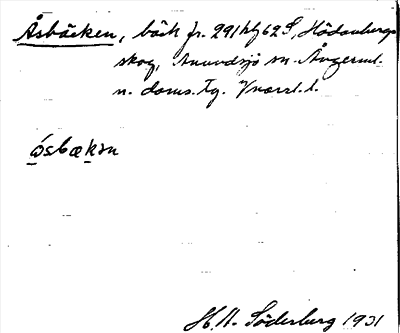 Åsbäcken, bäck fr. 291hf62S, Hädanbergs
skog, Anundsjö sn. Ångerml.
n. doms. Tg. Vnorrl. l.
ǻsbækən
H. A. Söderberg 1931